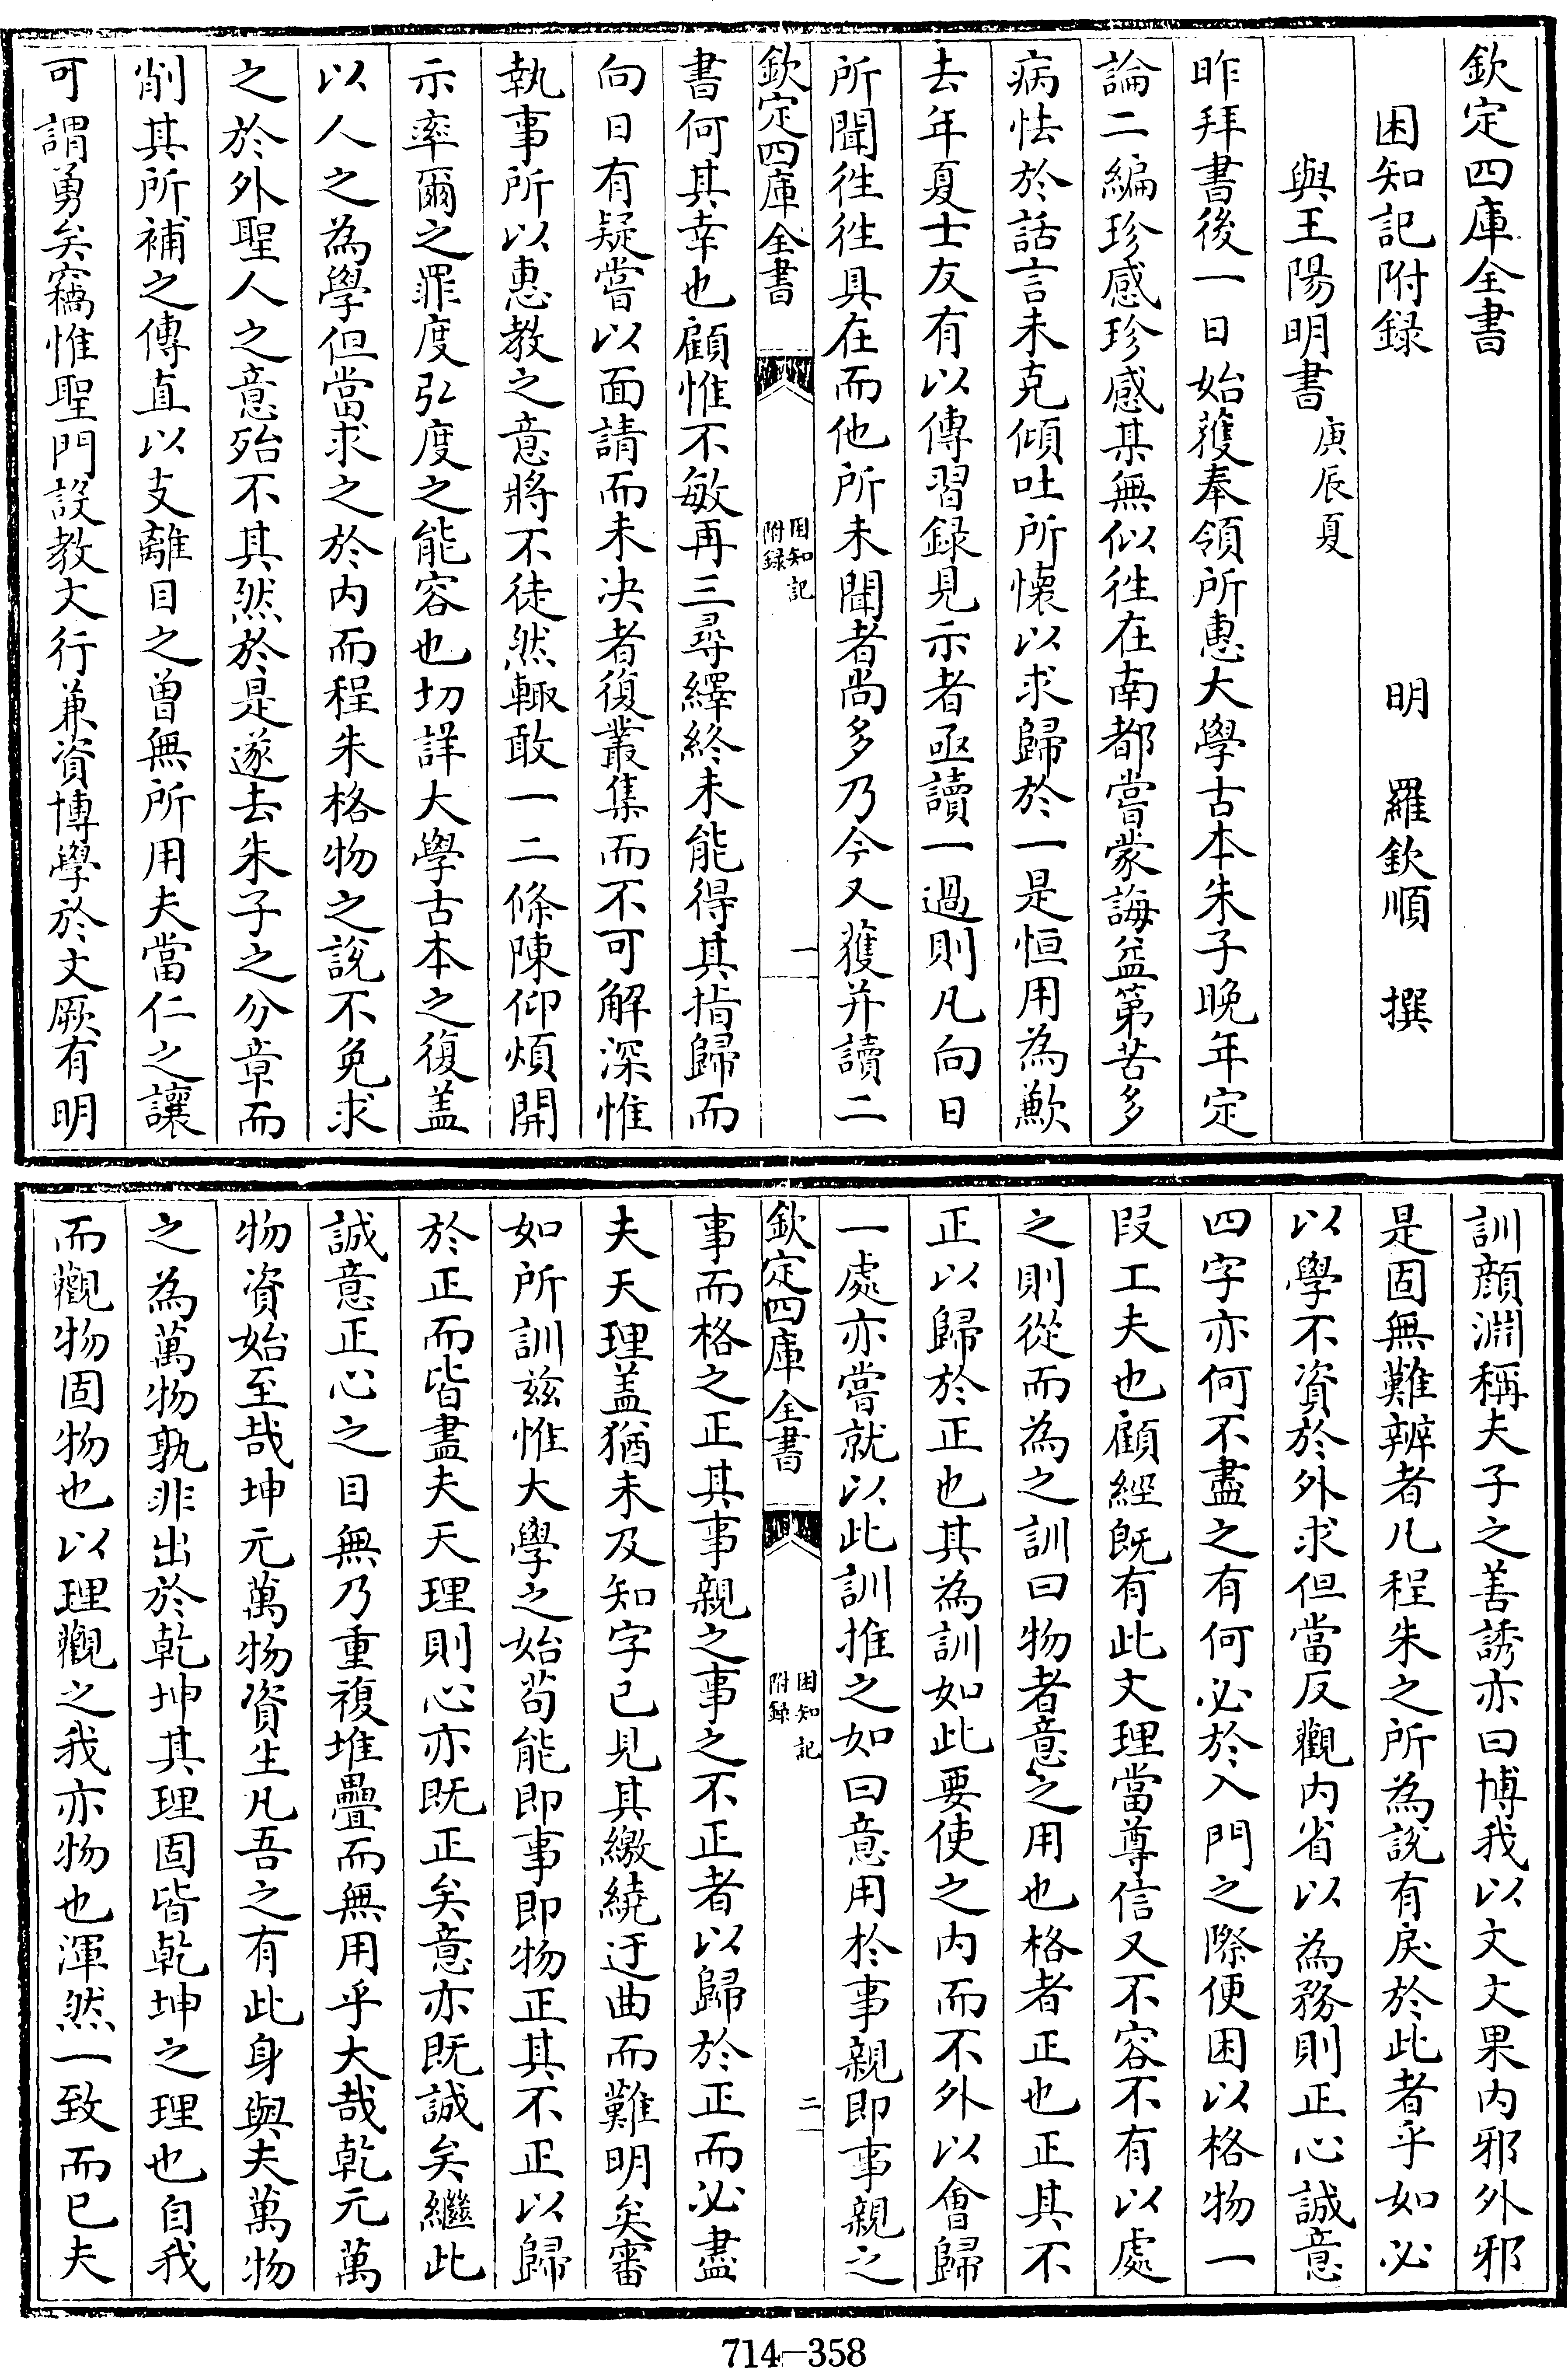 欽定四庫全書
困知記附録　明　羅欽順　撰
與王陽明書庚辰夏
昨拜書後一日始蒦奉領所惠大學古本朱子晚年定
論二編珍感珍感某無似徃在南都嘗蒙誨益第苦多
病怯於話言未克傾吐所懷以求歸於一是恒用為歉
去年夏士友有以傳習録見示者亟讀一過則凡向日
所聞徃徃具在而他所未聞者尚多乃今又獲并讀二
欽定四庫全書　困知記附録　一
書何其幸也顧惟不敏再三尋繹終未能得其指歸而
向日有疑嘗以面請而未决者復叢集而不可解深惟
執事所以惠教之意將不徒然輙敢一二條陳仰煩開
示率爾之罪度弘度之能容也切詳大學古本之復盖
以人之為學但當求之於内而程朱格物之説不免求
之於外聖人之意殆不其然於是遂去朱子之分章而
削其所補之傳直以支離目之曾無所用夫當仁之讓
可謂勇矣竊惟聖門設教文行兼資博學於文厥有明
訓顔淵稱夫子之善誘亦曰博我以文文果内邪外邪
是固無難辨者凡程朱之所為説有戾於此者乎如必
以學不資於外求但當反觀内省以為務則正心誠意
四字亦何不盡之有何必於入門之際便困以格物一
段工夫也顧經既有此文理當尊信又不容不有以處
之則從而為之訓曰物者意之用也格者正也正其不
正以歸於正也其為訓如此要使之内而不外以會歸
一處亦嘗就以此訓推之如曰意用於事親即事親之
欽定四庫全書　困知記附録　二
事而格之正其事親之事之不正者以歸於正而必盡
夫天理盖猶未及知字已見其繳繞迂曲而難明矣審
如所訓兹惟大學之始苟能即事即物正其不正以歸
於正而皆盡夫天理則心亦既正矣意亦既誠矣繼此
誠意正心之目無乃重複堆疊而無用乎大哉乾元萬
物資始至哉坤元萬物資生凡吾之有此身與夫萬物
之為萬物孰非出於乾坤其理固皆乾坤之理也自我
而觀物固物也以理觀之我亦物也渾然一致而已夫
714-358